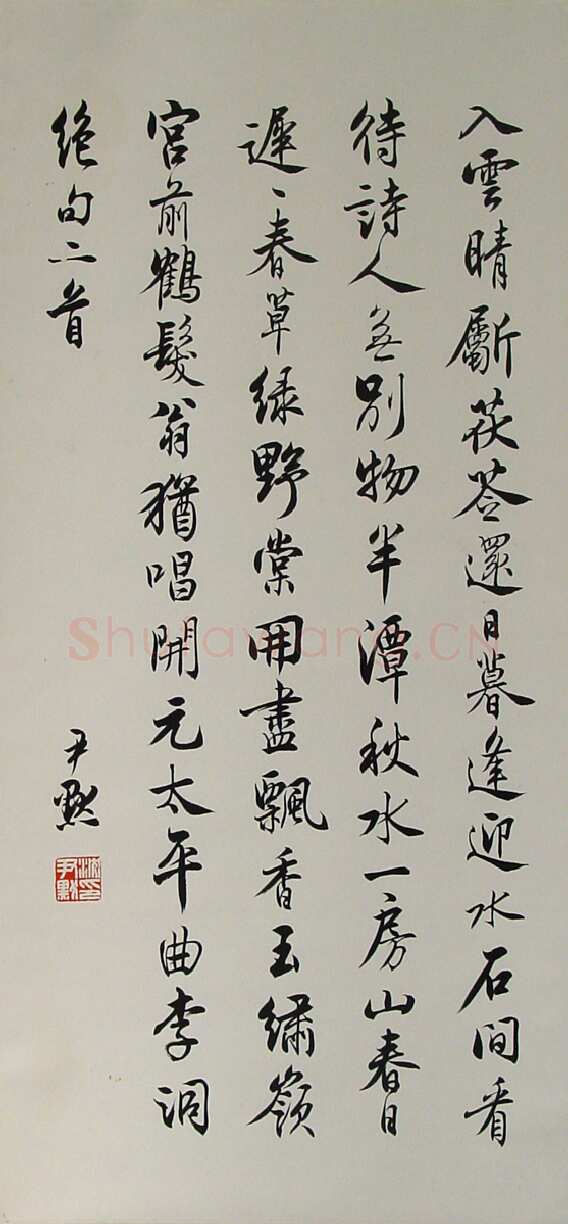 入雲晴劚茯苓還日暮逢迎水石間看
待詩人無別物半潭秋水一房山春日
遲〻春草绿野棠開盡飄香玉繡嶺
宮前鶴髮翁猶唱開元太平曲李洞
絶句二首
尹默
沈尹默印
Shufawang.CN